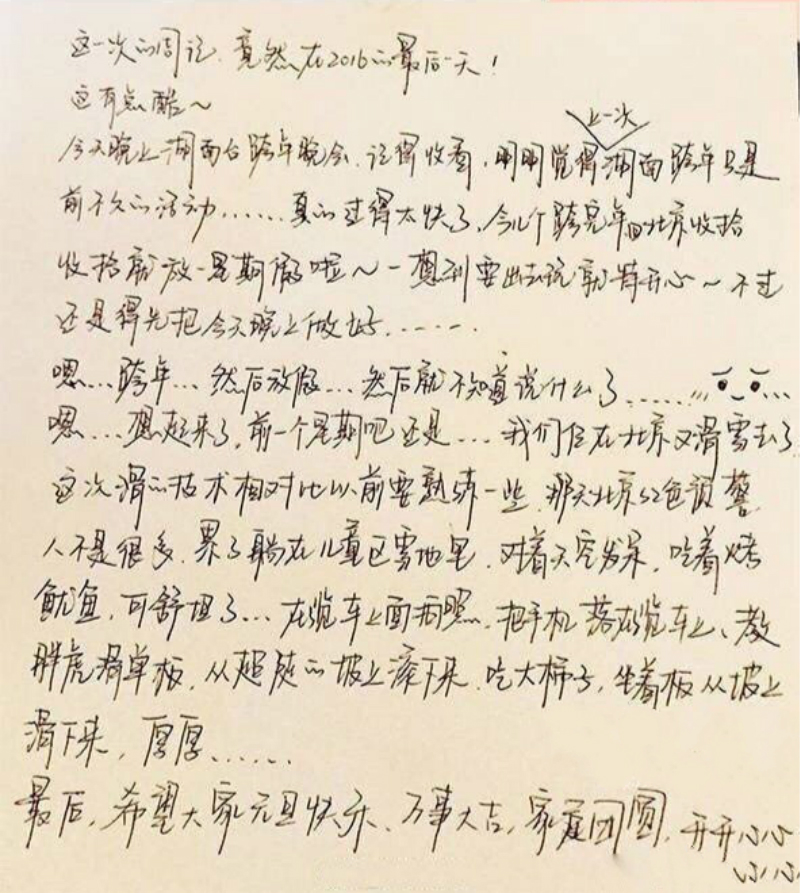 这一次的周记,竟然在2016的最后一天!
这有点酷~
上一次
今天晚上湖南台跨年晚会,记得收看,明明觉得湖南跨年只是
前不久的活动......真的过得太快了,今儿个跨完年回北京收拾
收拾就放一星期假啦~一想到要出去玩就特开心~不过
还是得先把今天晚上做好......
嗯...跨年...然后放假...然后就不知道说什么了......
嗯...想起来了,前一个星期吧还是...我们仨在北京又滑雪去了
这次滑的技术相对比以前要熟练一些,那天北京红色预警
人不是很多,累了躺在儿童区雪地里,对着天空发呆,吃着烤
鱿鱼,可舒坦了...在缆车上面拍照,把手机落在缆车上、教
胖虎滑单板,从超陡的坡上滚下来,吃大柿子,坐着板从坡上
滑下来,厚厚......
最后,希望大家元旦快乐、万事大吉,家庭团圆,开开心心